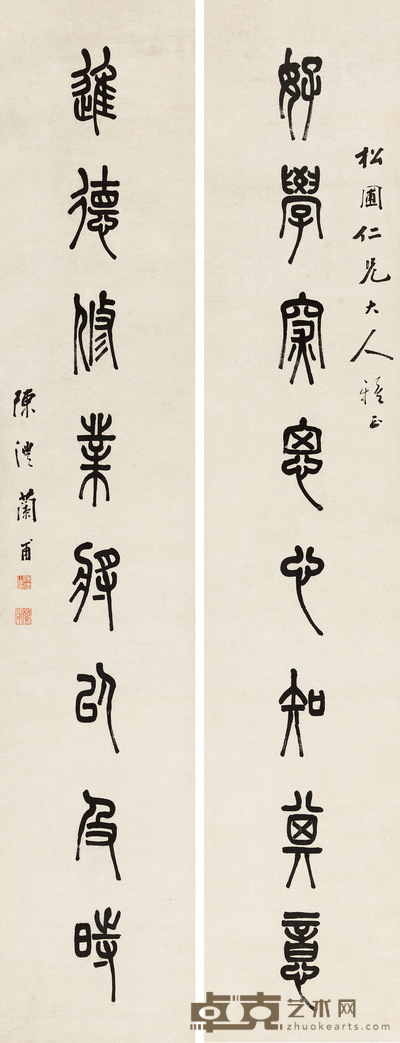 松圃仁兄大人雅正
好學深思心知其意
進德修業將以及時
陳澧蘭甫
卓克艺术网
zhuokearts.com